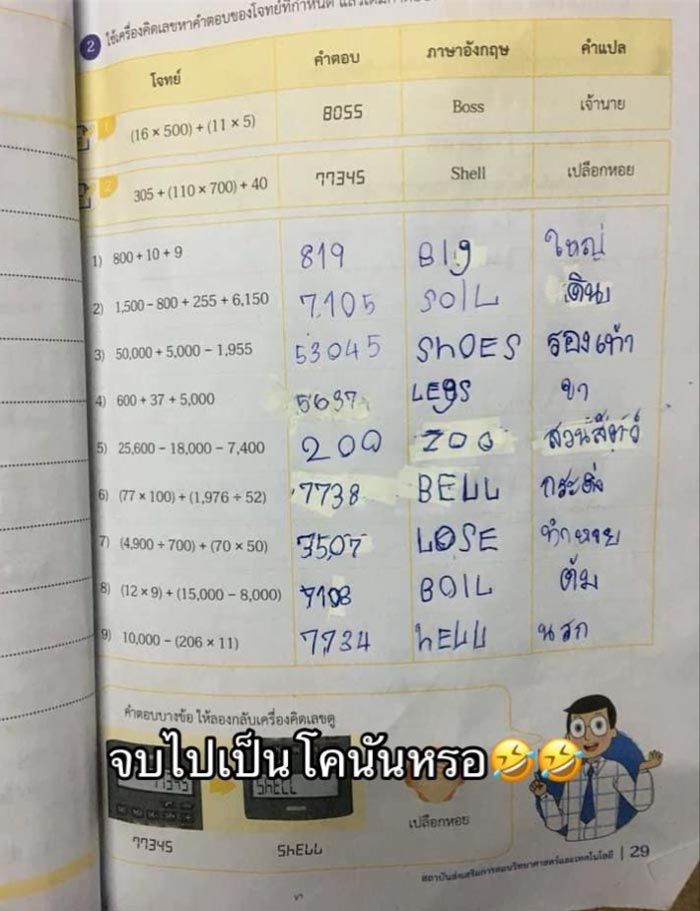 2 ใช้เครื่องคิดเลขหาคำตอบของโจทย์ที่กำหนด
โจทย์ คำตอบ ภาษาอังกฤษ คำแปล
1 (16 × 500) + (11 × 5) 8055 Boss เจ้านาย
2 305 + (110 × 700) + 40 77345 Shell เปลือกหอย
1) 800 + 10 + 9 819 BIg ใหญ่
2) 1,500 – 800 + 255 + 6,150 7,105 SOIL ดิน
3) 50,000 + 5,000 – 1,955 53045 ShOES รองเท้า
4) 600 + 37 + 5,000 5637 LEgS ขา
5) 25,600 – 18,000 – 7,400 200 ZOO สวนสัตว์
6) (77 × 100) + (1,976 ÷ 52) 7738 BELL กระดิ่ง
7) (4,900 ÷ 700) + (70 × 50) 3507 LOSE
8) (12 × 9) + (15,000 – 8,000) 7108 BOIL ต้ม
9) 10,000 – (206 × 11) 7,734 hELL นรก
คำตอบบางข้อ ให้ลองกลับเครื่องคิดเลขดู
จบไปเป็นโคนันหรอ🤣🤣
77345 ShELL
77345 ShELL เปลือกหอย
สถาบันส่งเสริมการสอนวิทยาศาสตร์และเทคโนโลยี | 29